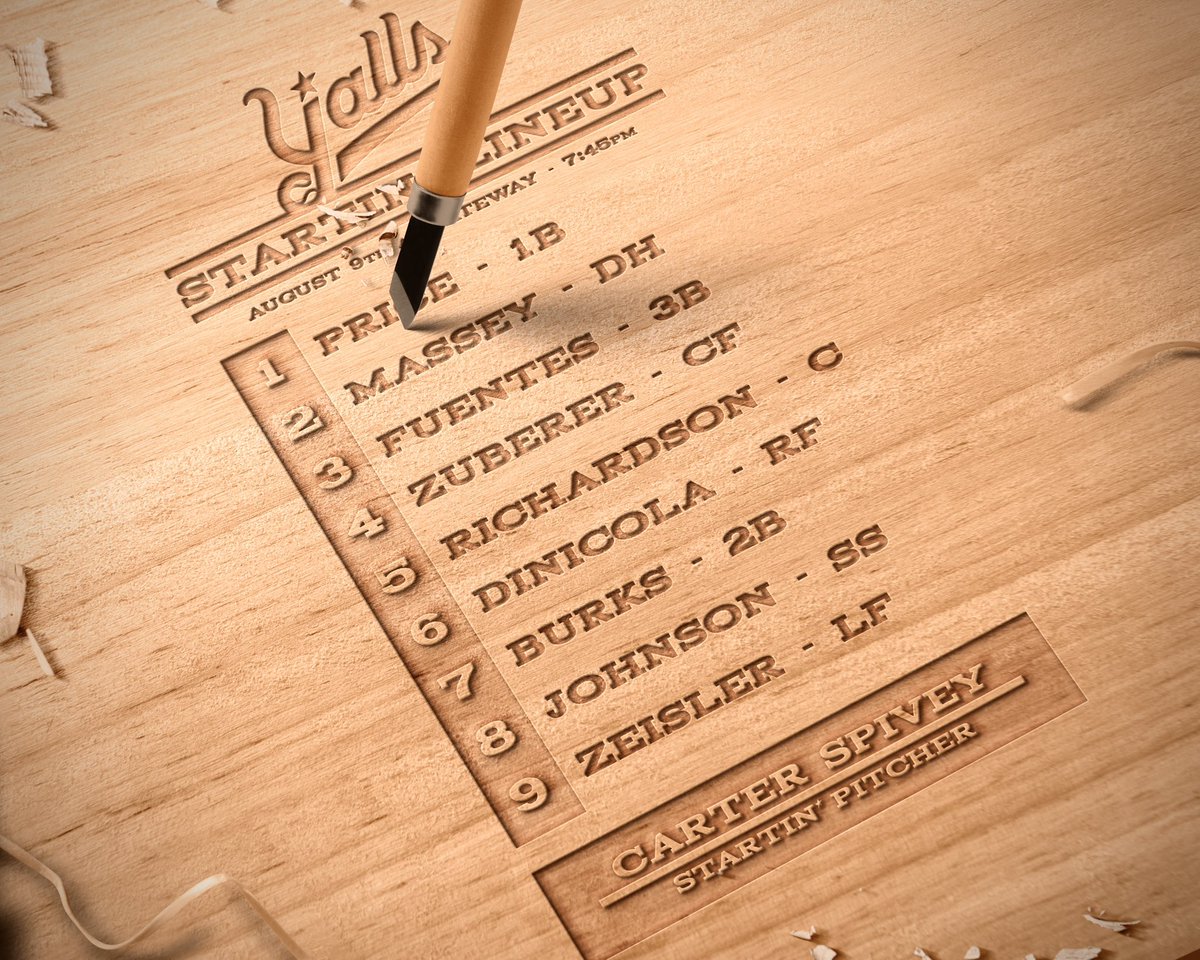 Yalls
STARTIN LINEUP
AUGUST 9TH GATEWAY - 7:45PM
1 PRICE - 1B
2 MASSEY - DH
3 FUENTES - 3B
4 ZUBERER - CF
5 RICHARDSON - C
6 DINICOLA - RF
7 BURKS - 2B
8 JOHNSON - SS
9 ZEISLER - LF
CARTER SPIVEY
STARTIN' PITCHER